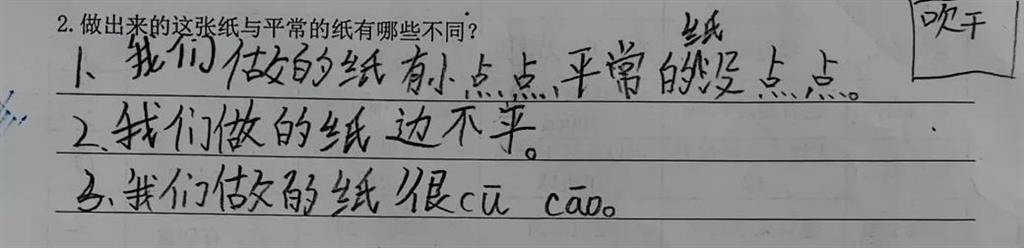 2. 做出来的这张纸与平常的纸有哪些不同？
吹干
1、我们做的纸有小点点,平常的纸没点点。
2.我们做的纸边不平。
3.我们做的纸很cū cāo。